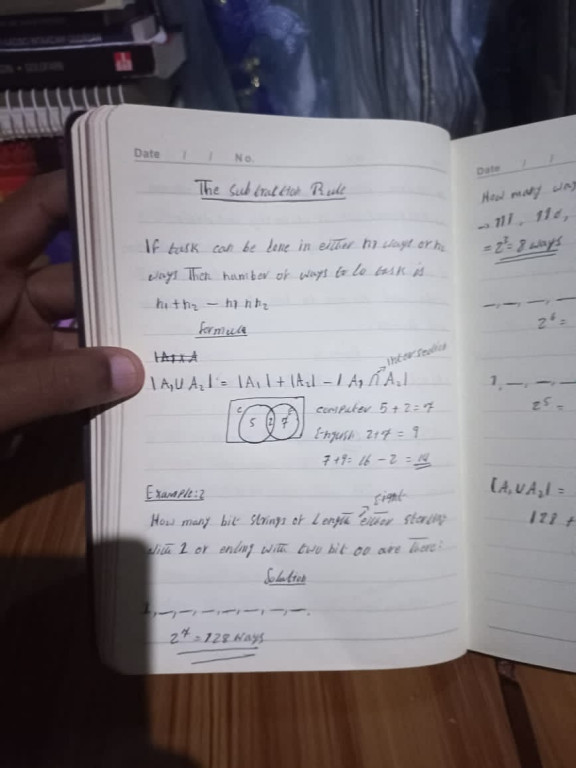 Date / / No.
The subtraction Rule
If task can be done in either n1 ways or n2
ways Then number of ways to do task is
n1 + n2 − n1 ∩ n2
formula
|A1 ∪ A2| = |A1| + |A2| − |A1 ∩ A2|
intersection
C E
5 2 7
computer 5 + 2 = 7
English 2 + 7 = 9
7 + 9 = 16 − 2 = 14
Example:2
eight
How many bit strings of Length either starting
with 1 or ending with two bit 00 are there:
Solution
1, —, —, —, —, —, —, —.
2^7 = 128 ways
Date / /
How many way
→ 111, 110,
= 2^3 = 8 ways
—, —, —, —
2^6 =
1, —, —, —
2^5 =
|A1 ∪ A2| =
128 +